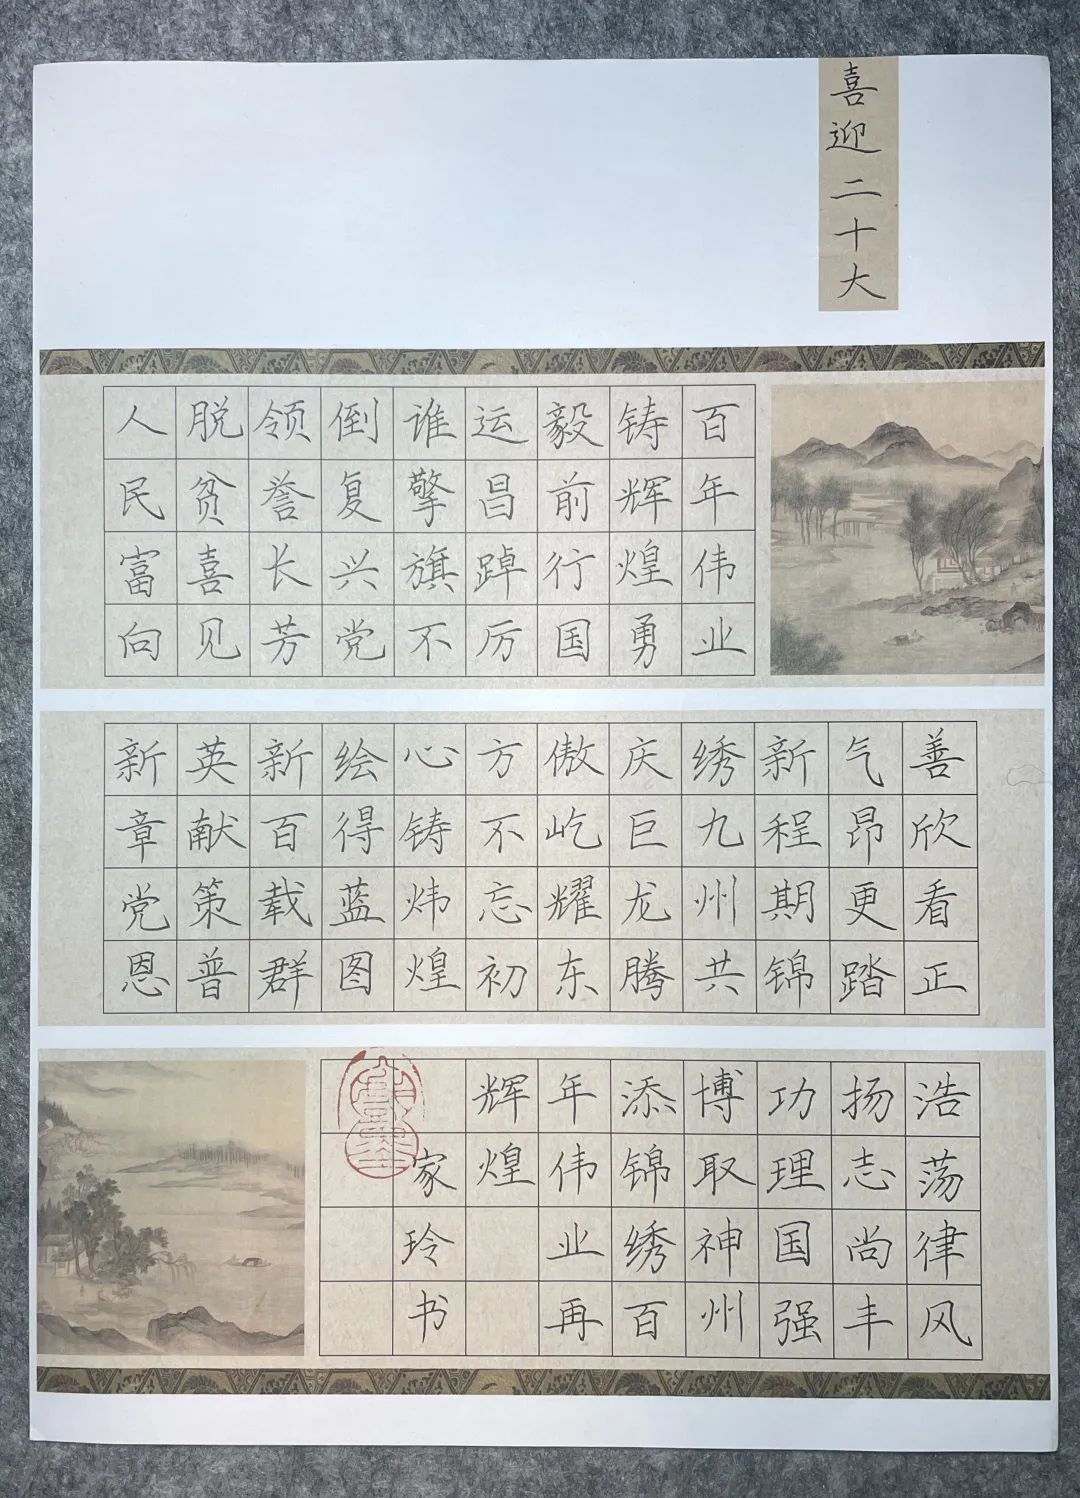 喜迎二十大
百年伟业
铸辉煌勇
毅前行国
运昌踔厉
谁擎旗不
倒复兴党
领誉长芳
脱贫喜见
人民富向
善欣看正
气昂更踏
新程期锦
绣九州共
庆巨龙腾
傲屹耀东
方不忘初
心铸炜煌
绘得蓝图
新百载群
英献策普
新章党恩
浩荡律风
扬志尚丰
功理国强
博取神州
添锦绣百
年伟业再
辉煌
家玲书